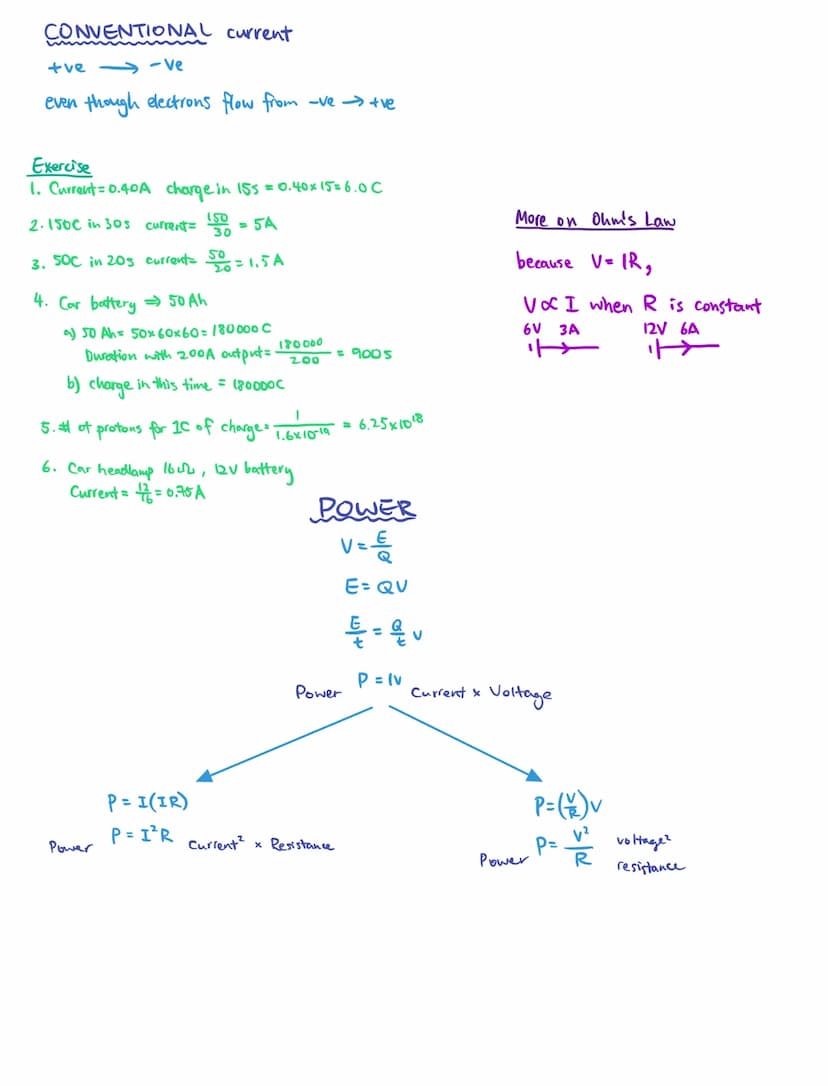 CONVENTIONAL current
+ve → -ve
even though electrons flow from -ve → +ve
Exercise
1. Current = 0.40A charge in 15s = 0.40 x 15 = 6.0 C
2. 150C in 30s current = 150/30 = 5A
3. 50C in 20s current = 50/20 = 1.5 A
4. Car battery ⇒ 50 Ah
a) 50 Ah = 50x60x60 = 180000 C
Duration with 200A output = 180000/200 = 900s
b) charge in this time = 180000C
5. # of protons for 1C of charge = 1/1.6x10^-19 = 6.25x10^18
6. Car headlamp 16Ω, 12V battery
Current = 12/16 = 0.75 A
More on Ohm's Law
because V = IR,
V ∝ I when R is constant
6V 3A 12V 6A
POWER
V = E/Q
E = QV
E/t = Q/t V
P = IV
Power Current x Voltage
P = I(IR)
P = I²R
Power Current² x Resistance
P = (V/R)V
P = V²/R
Power voltage²
resistance